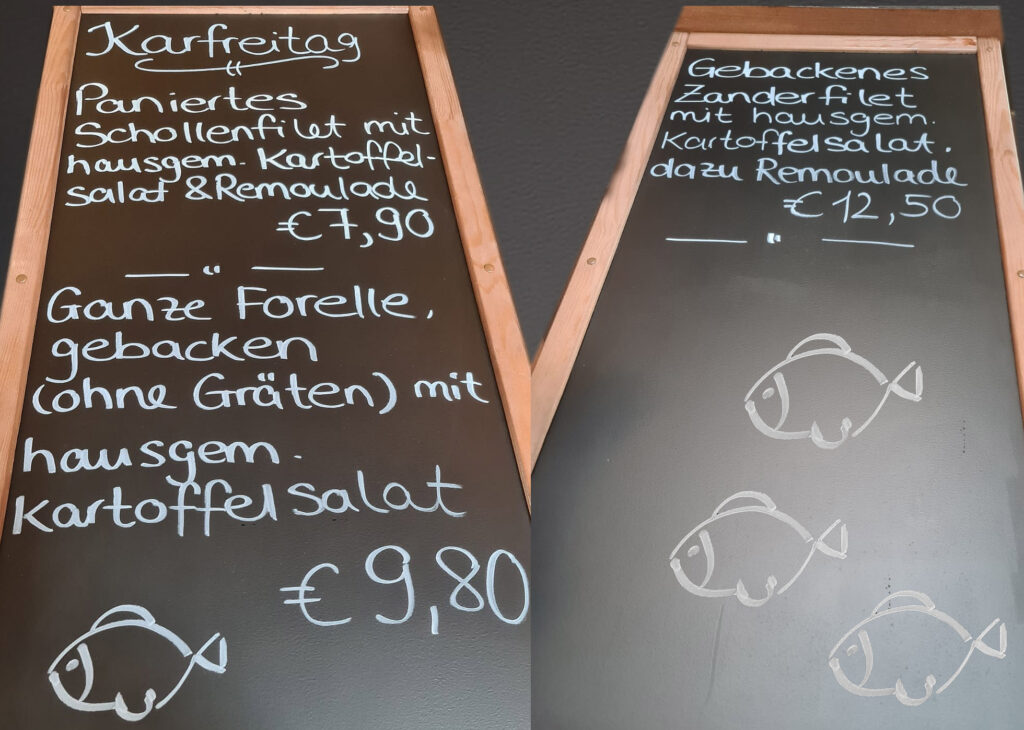 Karfreitag
Paniertes
Schollenfilet mit
hausgem. Kartoffel-
salat & Remoulade
€ 7,90
— " —
Ganze Forelle,
gebacken
(ohne Gräten) mit
hausgem.
Kartoffelsalat
€ 9,80
Gebackenes
Zanderfilet
mit hausgem.
Kartoffelsalat.
dazu Remoulade
€ 12,50
— " —